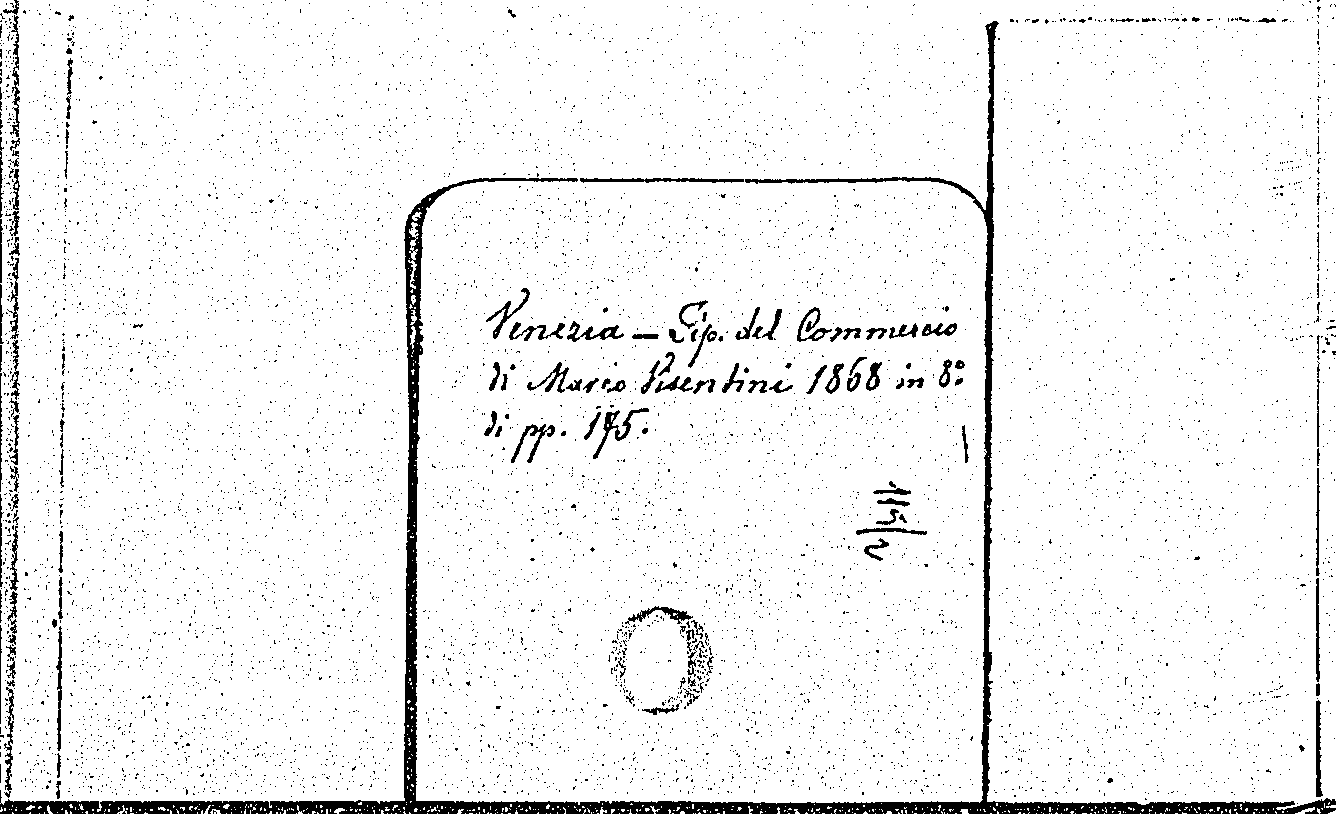 Venezia — Tip. del Commercio
di Marco Visentini 1868 in 8º.
di pp. 175.